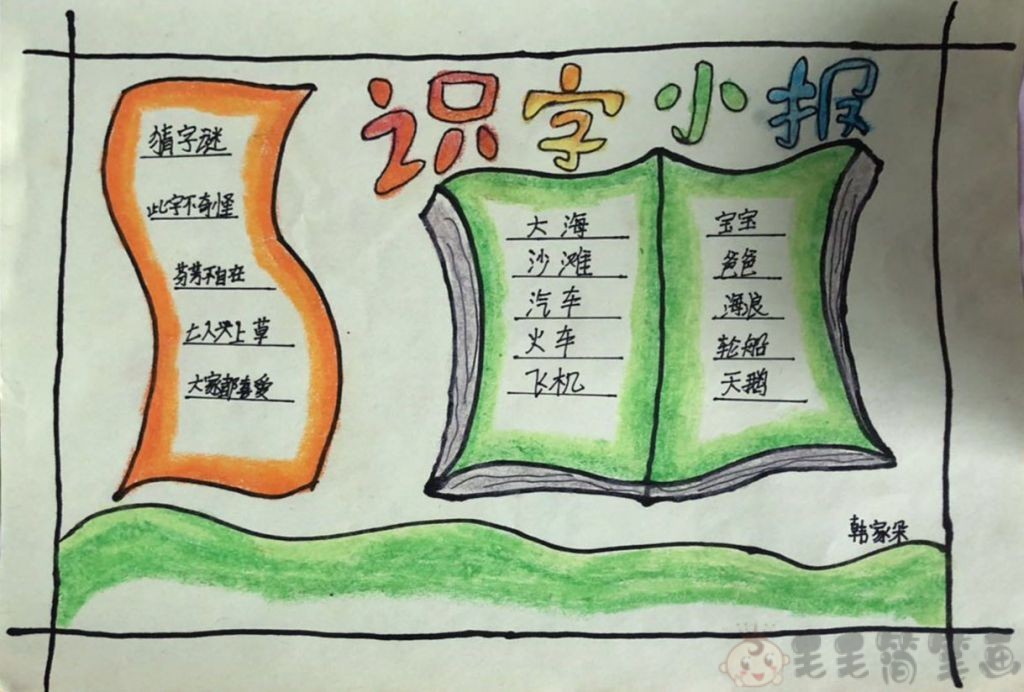 识字小报
猜字谜
此字不奇怪
芬芳不自在
七人头上草
大家都喜爱
大海
沙滩
汽车
火车
飞机
宝宝
爸爸
海浪
轮船
天鹅
韩家朵
毛毛简笔画